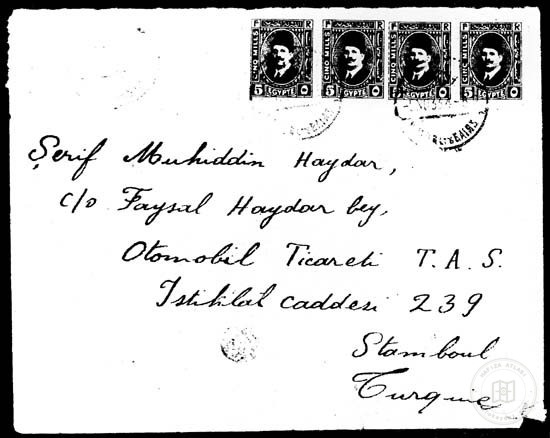 F R F R F R F R
CINQ MILLS CINQ MILLS CINQ MILLS CINQ MILLS
5 EGYPTE ٥ 5 EGYPTE ٥ 5 EGYPTE ٥ 5 EGYPTE ٥
Şerif Muhiddin Haydar,
c/o Faysal Haydar bey,
Otomobil Ticareti T.A.S.
Istiklâl caddesi 239
Stamboul
Turquie